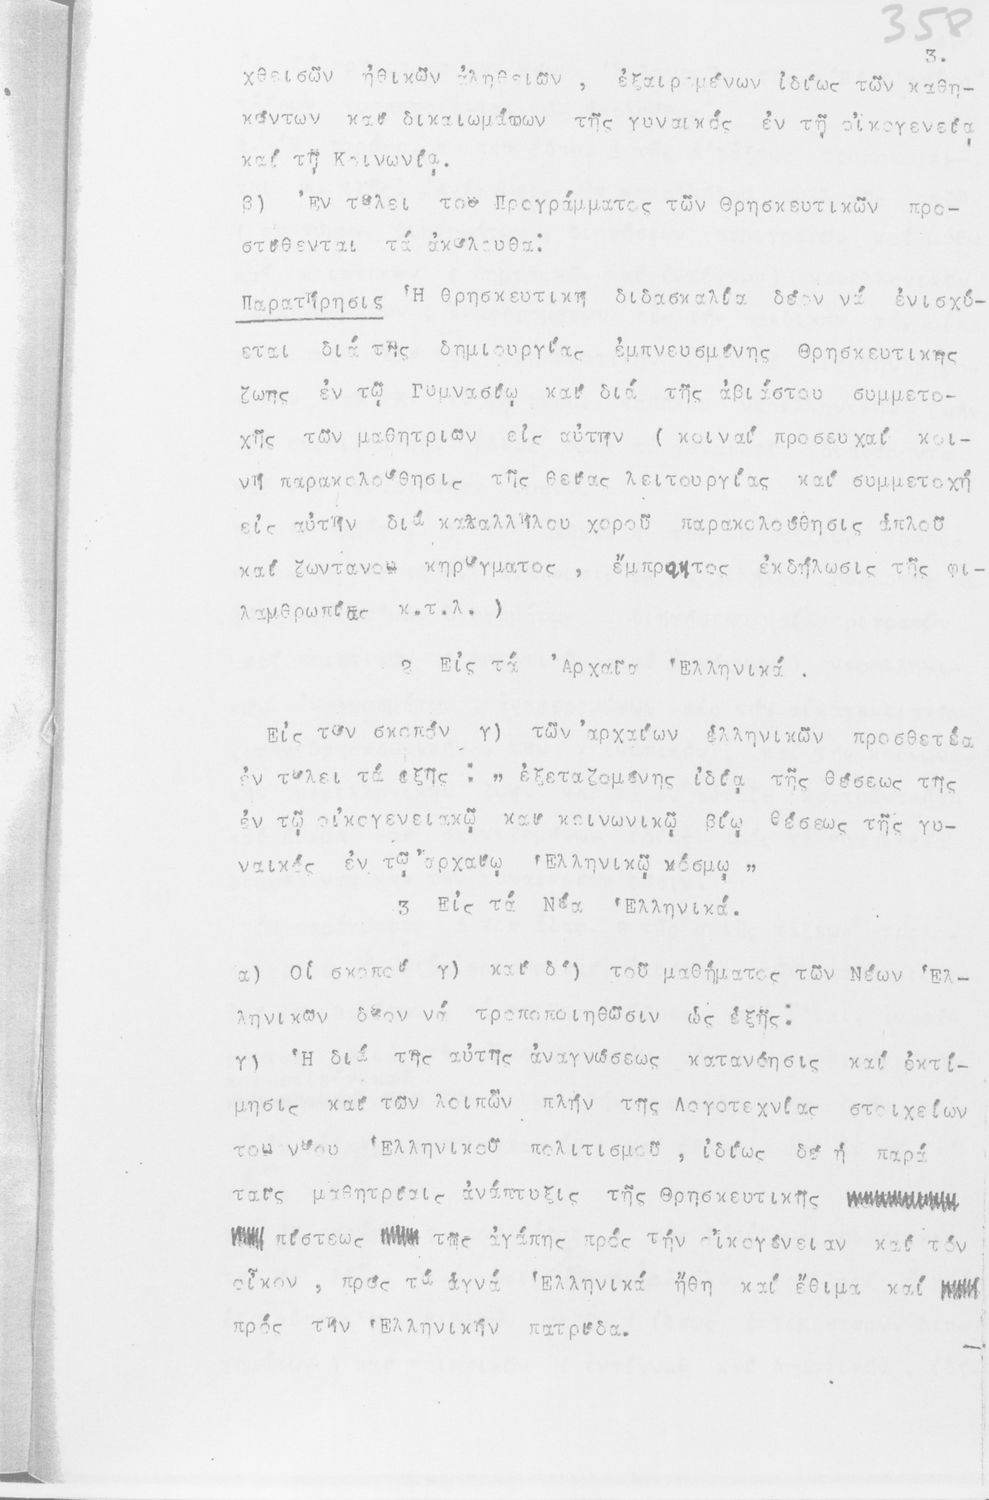 358
3.
χθεισῶν ἠθικῶν ἀληθειῶν , ἐξαιρομένων ἰδίως τῶν καθη-
κόντων καί δικαιωμάτων τῆς γυναικός ἐν τῇ οἰκογενείᾳ
καί τῇ Κοινωνίᾳ.
β) Ἐν τέλει τοῦ Προγράμματος τῶν Θρησκευτικῶν προ-
στίθενται τά ἀκόλουθα:
Παρατήρησις Ἡ θρησκευτική διδασκαλία δέον νά ἐνισχύ-
εται διά τῆς δημιουργίας ἐμπνευσμένης Θρησκευτικῆς
ζωῆς ἐν τῷ Γυμνασίῳ καί διά τῆς ἀβιάστου συμμετο-
χῆς τῶν μαθητριῶν εἰς αὐτήν ( κοιναί προσευχαί κοι-
νή παρακολούθησις τῆς θείας λειτουργίας καί συμμετοχή
εἰς αὐτήν διά καταλλήλου χοροῦ παρακολούθησις ἁπλοῦ
καί ζωντανοῦ κηρύγματος , ἔμπρακτος ἐκδήλωσις τῆς φι-
λανθρωπίας κ.τ.λ. )
2 Εἰς τά Ἀρχαῖα Ἑλληνικά .
Εἰς τόν σκοπόν γ) τῶν ἀρχαίων ἑλληνικῶν προσθετέα
ἐν τέλει τά ἑξῆς : " ἐξεταζομένης ἰδίᾳ τῆς θέσεως τῆς
ἐν τῷ οἰκογενειακῷ καί κοινωνικῷ βίῳ θέσεως τῆς γυ-
ναικός ἐν τῷ ἀρχαίῳ Ἑλληνικῷ κόσμῳ "
3 Εἰς τά Νέα Ἑλληνικά.
α) Οἱ σκοποί γ) καί δ') τοῦ μαθήματος τῶν Νέων Ἑλ-
ληνικῶν δέον νά τροποποιηθῶσιν ὡς ἑξῆς:
γ) Ἡ διά τῆς αὐτῆς ἀναγνώσεως κατανόησις καί ἐκτί-
μησις καί τῶν λοιπῶν πλήν τῆς Λογοτεχνίας στοιχείων
τοῦ νέου Ἑλληνικοῦ πολιτισμοῦ , ἰδίως δέ ἡ παρά
ταῖς μαθητρίαις ἀνάπτυξις τῆς Θρησκευτικῆς
πίστεως τῆς ἀγάπης πρός τήν οἰκογένειαν καί τόν
οἶκον , πρός τά ἁγνά Ἑλληνικά ἤθη καί ἔθιμα καί
πρός τήν Ἑλληνικήν πατρίδα.